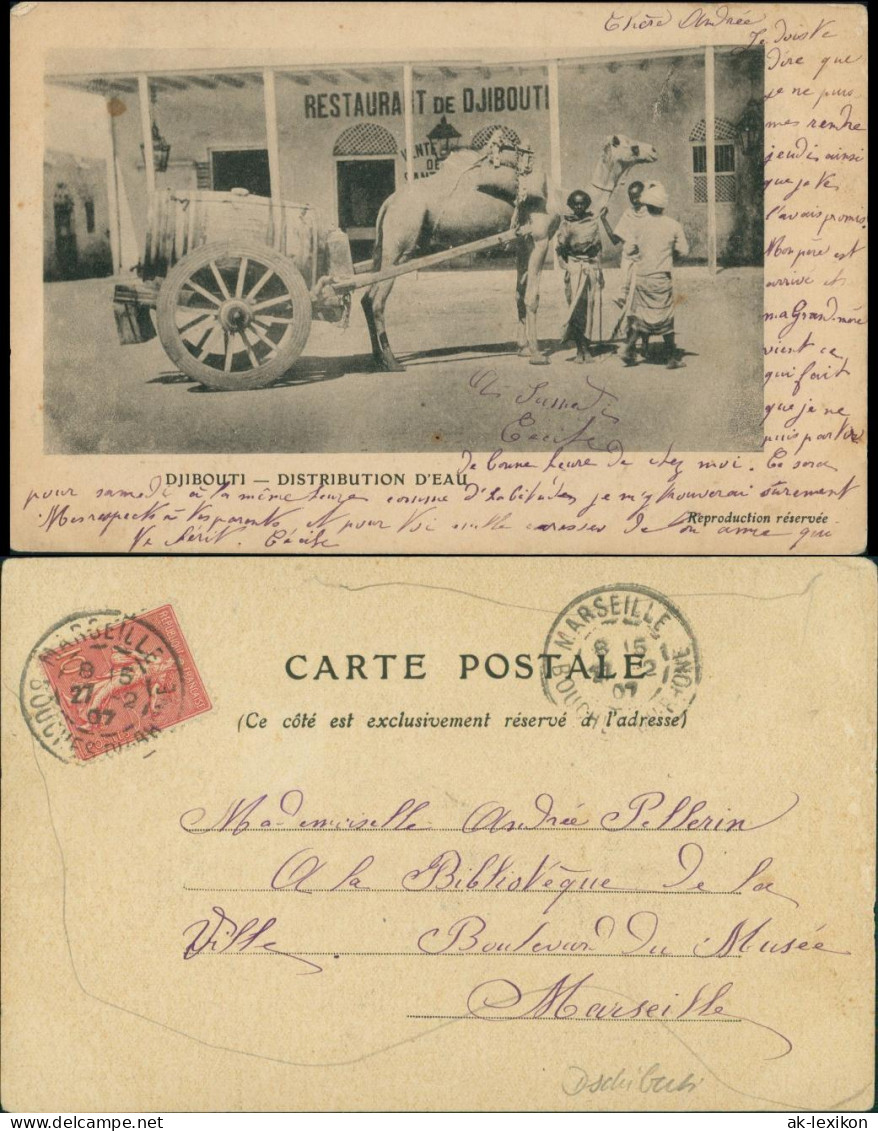 Chère Andrée
Je dois te
dire que
je ne puis
mes rendre
jeudi ainsi
que je te
l'avais promis.
Mon père est
arrivé et
ma Grand-mère
vient ce
qui fait
que je ne
puis partir
RESTAURANT DE DJIBOUTI
VENTE
DE
A Samedi
Cécile
de bonne heure de chez moi. Ce sera
DJIBOUTI — DISTRIBUTION D'EAU
pour samedi à la même heure comme d'habitude, je m'y trouverai surement
Mes respects à tes parents et pour toi mille caresses de ton amie qui
Reproduction réservée
te chérit. Cécile
MARSEILLE
8 15
27 2
07
BOUCHES DU RHONE
REPUBLIQUE FRANÇAISE
10
MARSEILLE
8 15
27 2
07
BOUCHES DU RHONE
CARTE POSTALE
(Ce côté est exclusivement réservé à l'adresse)
Mademoiselle Andrée Pellerin
A la Bibliothèque de la
Ville Boulevard du Musée
Marseille
Dschibuti
ak-lexikon